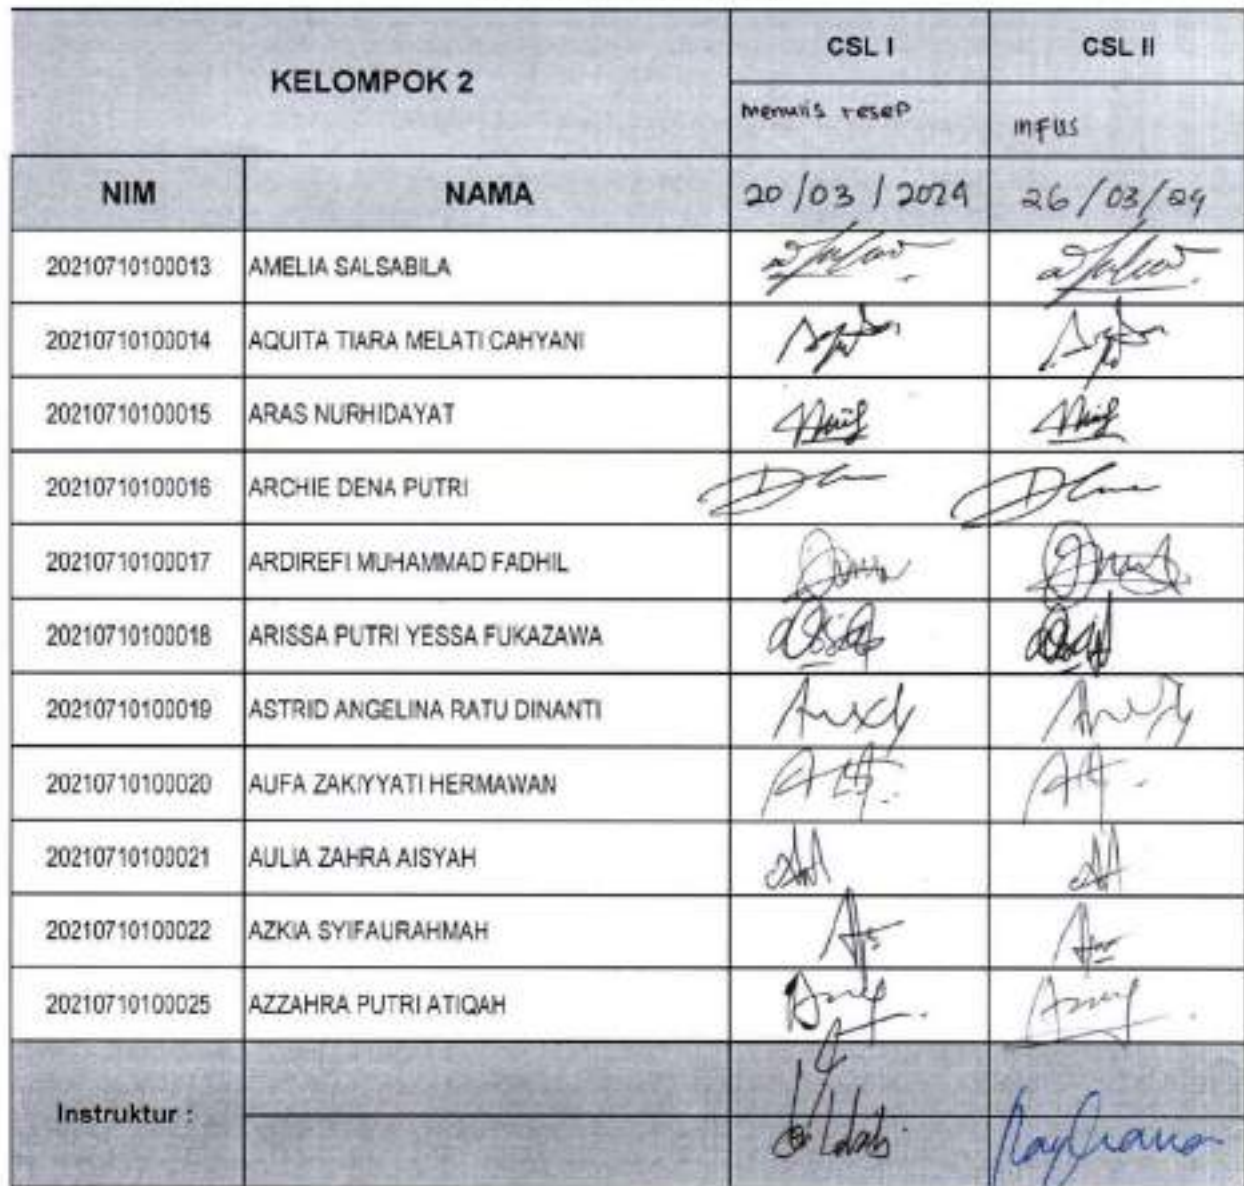 KELOMPOK 2
CSL I
CSL II
Menulis resep
infus
NIM
NAMA
20/03/2024
26/03/24
20210710100013 AMELIA SALSABILA
20210710100014 AQUITA TIARA MELATI CAHYANI
20210710100015 ARAS NURHIDAYAT
20210710100016 ARCHIE DENA PUTRI
20210710100017 ARDIREFI MUHAMMAD FADHIL
20210710100018 ARISSA PUTRI YESSA FUKAZAWA
20210710100019 ASTRID ANGELINA RATU DINANTI
20210710100020 AUFA ZAKIYYATI HERMAWAN
20210710100021 AULIA ZAHRA AISYAH
20210710100022 AZKIA SYIFAURAHMAH
20210710100025 AZZAHRA PUTRI ATIQAH
Instruktur :